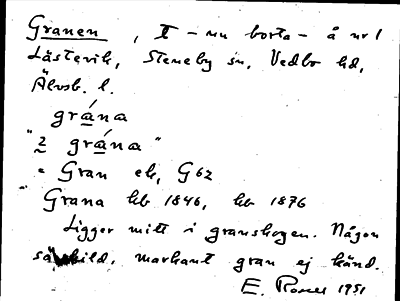 Granen, t - nu borta - å nr 1
Låsterik, Steneby sn, Vedbo hd,
Älvsb. l.
grána
"2 grána"
= Gran ek, G62
Grana hb 1846, hb 1876
Ligger mitt i granskogen. Någon
särskild, markant gran ej känd.
E. 1951